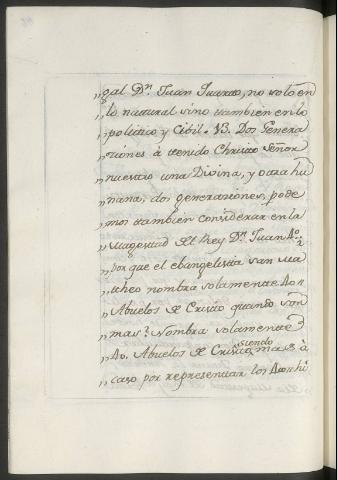 „gal Dⁿ. Juan Quarto, no solo en
„lo natural sino tambien en lo
„politico y Cibil. V3. Dos Genera
„ciones à tenido Christo Señor
„nuestro una Divina, y otra hu
„mana, dos generasiones, pode
„mos tambien considerar en la
„Magestad del Rey Dⁿ. Juan 4º.
„por que el ebangelista san Ma
„theo nombra solamente
„Abuelos de Cristo quando son
„mas? Nombra solamente
„40. Abuelos de Cristo, siendo mas à
„caso por representar los